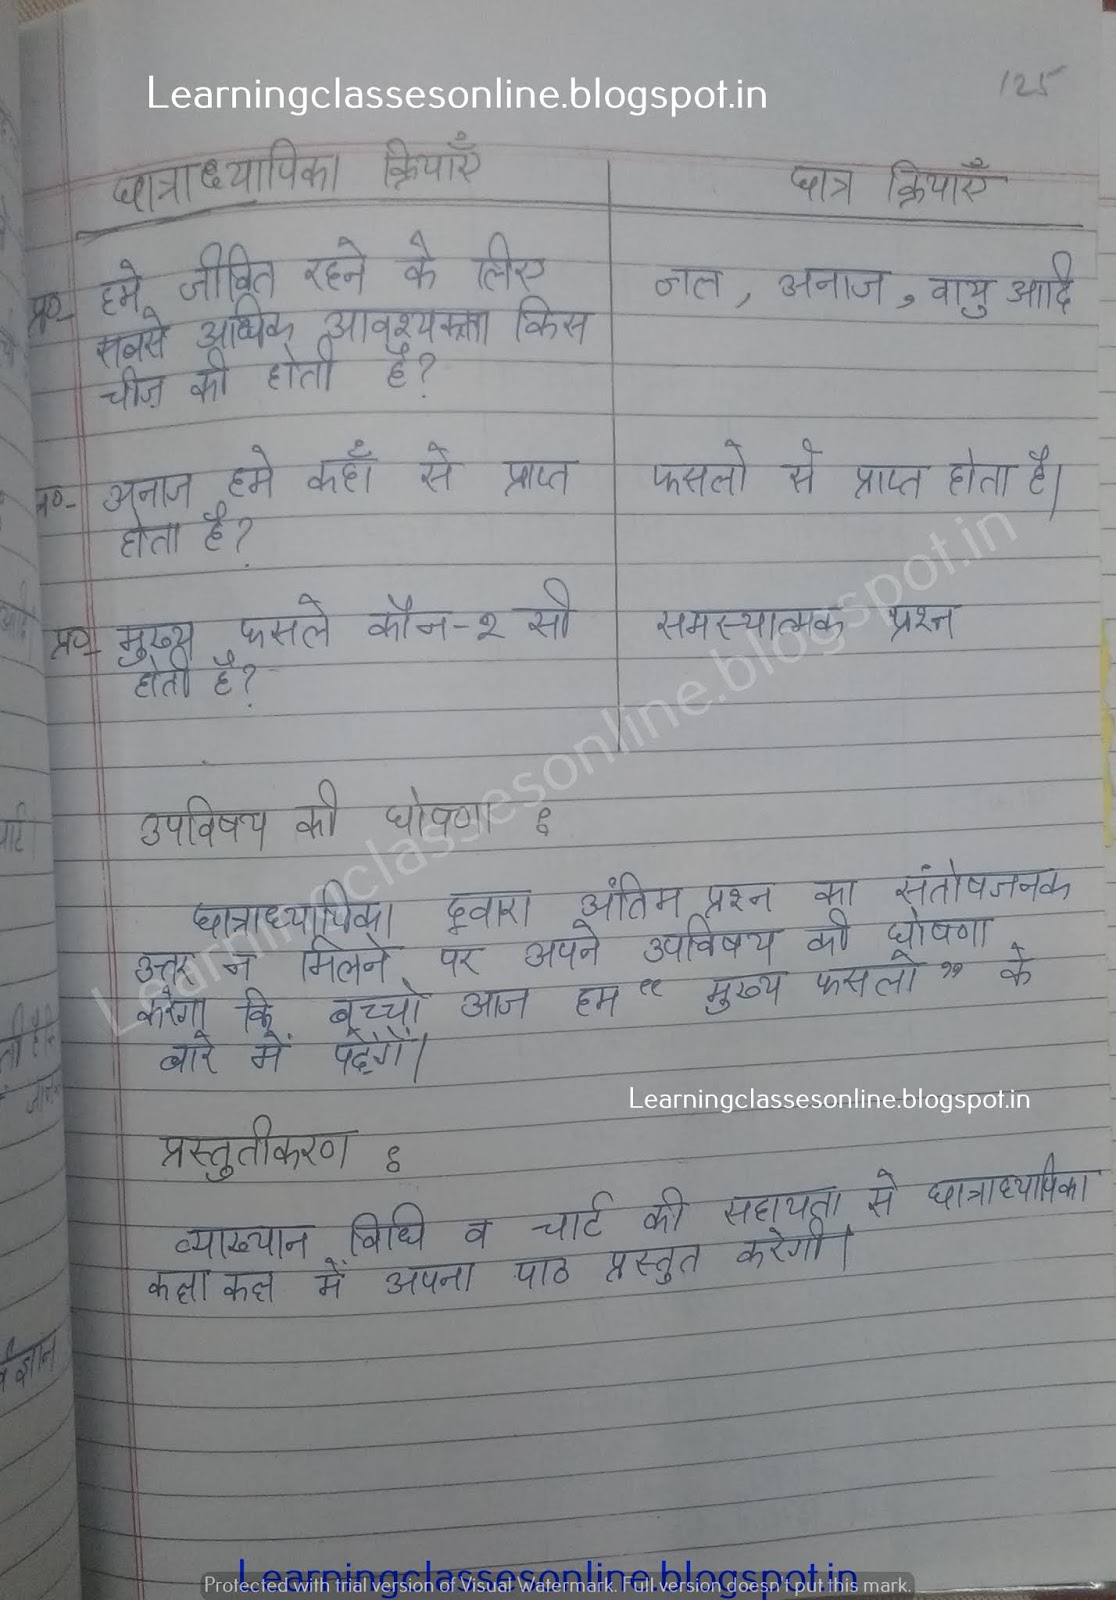 Learningclassesonline.blogspot.in
125
छात्राध्यापिका क्रियाएँ
छात्र क्रियाएँ
प्र०- हमे जीवित रहने के लिए
सबसे अधिक आवश्यकता किस
चीज़ की होती है?
जल, अनाज, वायु आदि
प्र०- अनाज हमे कहाँ से प्राप्त
होता है?
फसलो से प्राप्त होता है।
प्र०- मुख्य फसले कौन-२ सी
होती है?
समस्यात्मक प्रश्न
Learningclassesonline.blogspot.in
उपविषय की घोषणा :
छात्राध्यापिका द्वारा अंतिम प्रश्न का संतोषजनक
उत्तर न मिलने पर अपने उपविषय की घोषणा
करेगा कि बच्चो आज हम “ मुख्य फसलो ” के
बारे में पढ़ेगें।
Learningclassesonline.blogspot.in
प्रस्तुतीकरण :
व्याख्यान विधि व चार्ट की सहायता से छात्राध्यापिका
कक्षा कक्ष में अपना पाठ प्रस्तुत करेगी।
Learningclassesonline.blogspot.in
Protected with trial version of Visual Watermark. Full version doesn't put this mark.